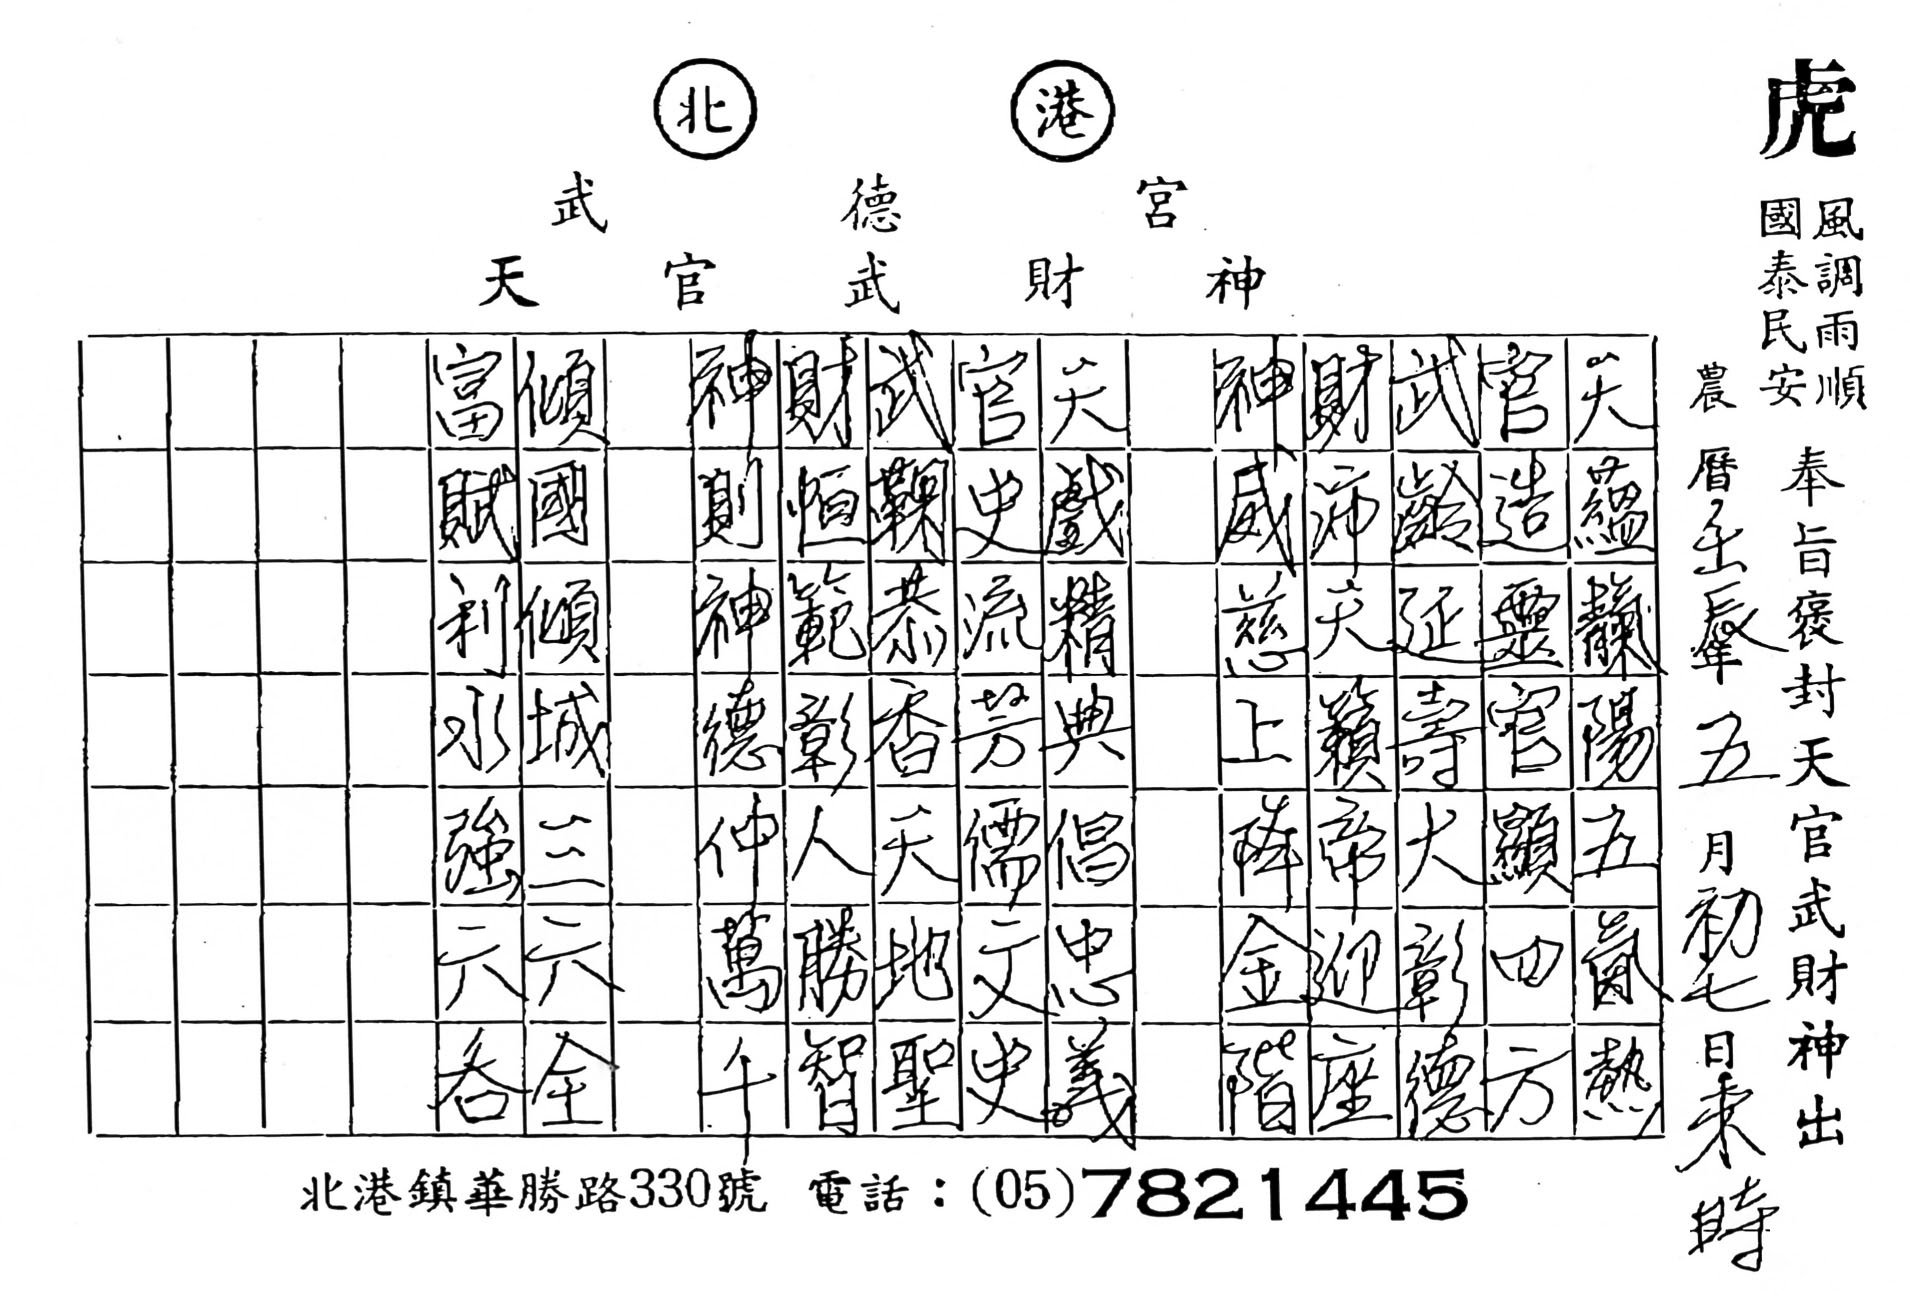 北港
武德宮
天官武財神
虎
風調雨順
國泰民安
奉旨褒封天官武財神出
農曆壬辰年五月初七日未時
天蘊驥陽五氣熱
官造靈官顯四方
武齡延壽大彰德
財沛天籟帝迎座
神威慈上降金階
天戲精典倡忠義
官史流芳儒文史
武鞠恭香天地聖
財恒範彰人勝智
神則神德仲萬千
傾國傾城三六全
富賦利水強六吞
北港鎮華勝路330號 電話：(05)7821445